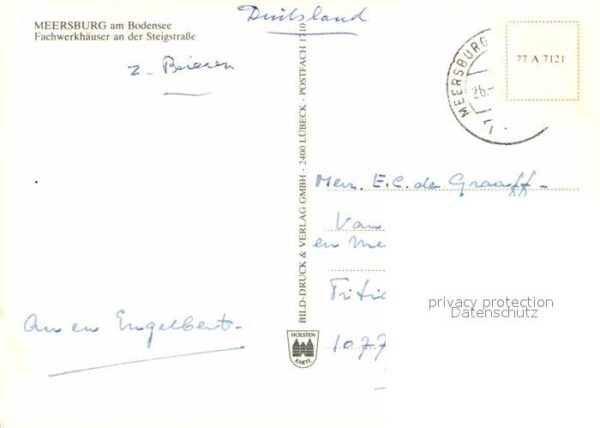 MEERSBURG am Bodensee
Fachwerkhäuser an der Steigstraße
Duitsland
z. Beieren
An en Engelbert.
BILD-DRUCK & VERLAG GMBH - 2400 LÜBECK - POSTFACH 1710
HOLSTEN
KARTE
MEERSBURG
26.
77 A 7121
E.C. de Graaff-
Van
en Me
Titi
1077
privacy protection
Datenschutz